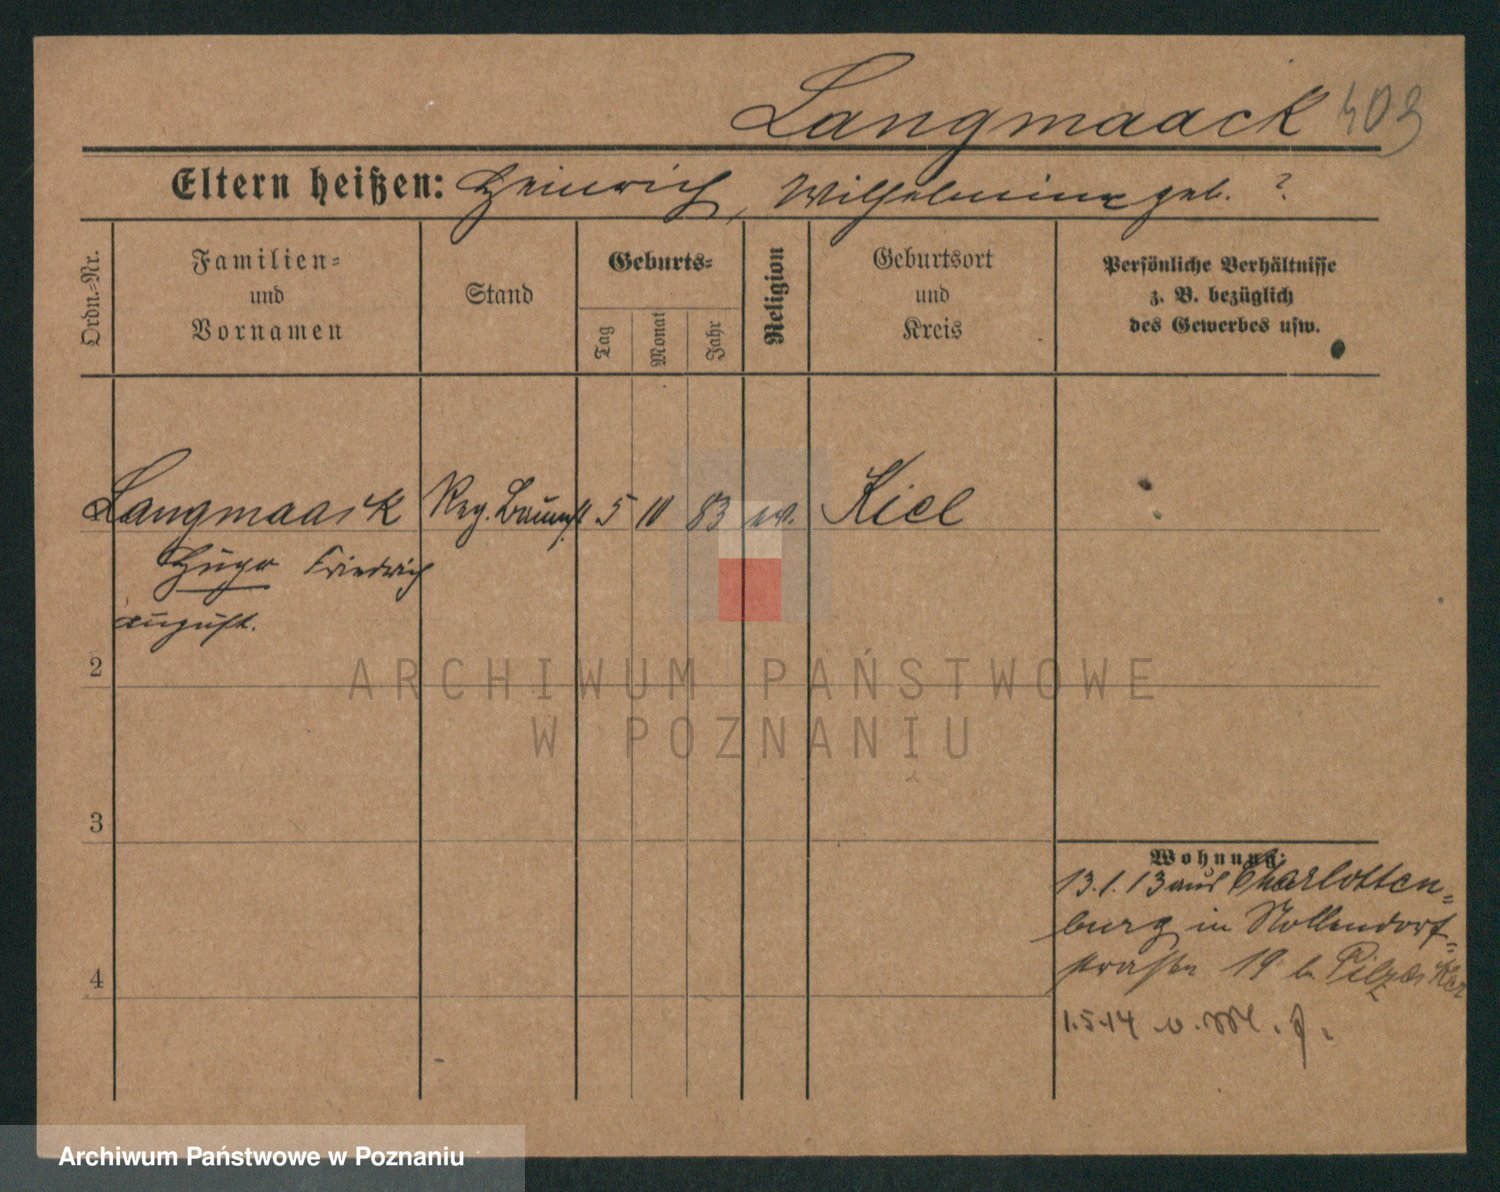 Langmaack 403
Eltern heißen: Heinrich, Wilhelmine geb. ?
Ordn.-Nr.
Familien-
und
Vornamen
Stand
Geburts-
Tag
Monat
Jahr
Religion
Geburtsort
und
Kreis
Persönliche Verhältnisse
z. B. bezüglich
des Gewerbes usw.
Langmaack Reg. Baumst. 5 10 83 ev. Kiel
Hugo Friedrich
August.
2
3
4
Wohnung:
13.1.13 aus Charlotten-
burg in Nollendorf-
straße 19 b.
1.5.14 v.
ARCHIWUM PAŃSTWOWE
W POZNANIU
Archiwum Państwowe w Poznaniu